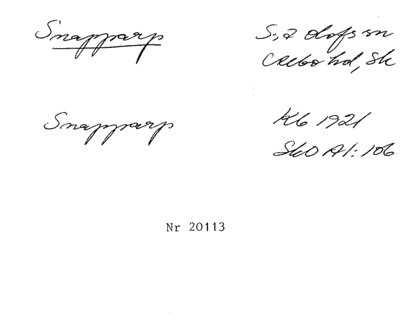 Snapparp
S:t Olofs sn
Albo hd, Sk
Snapparp
Kb 1921
SkO A1:106
Nr 20113